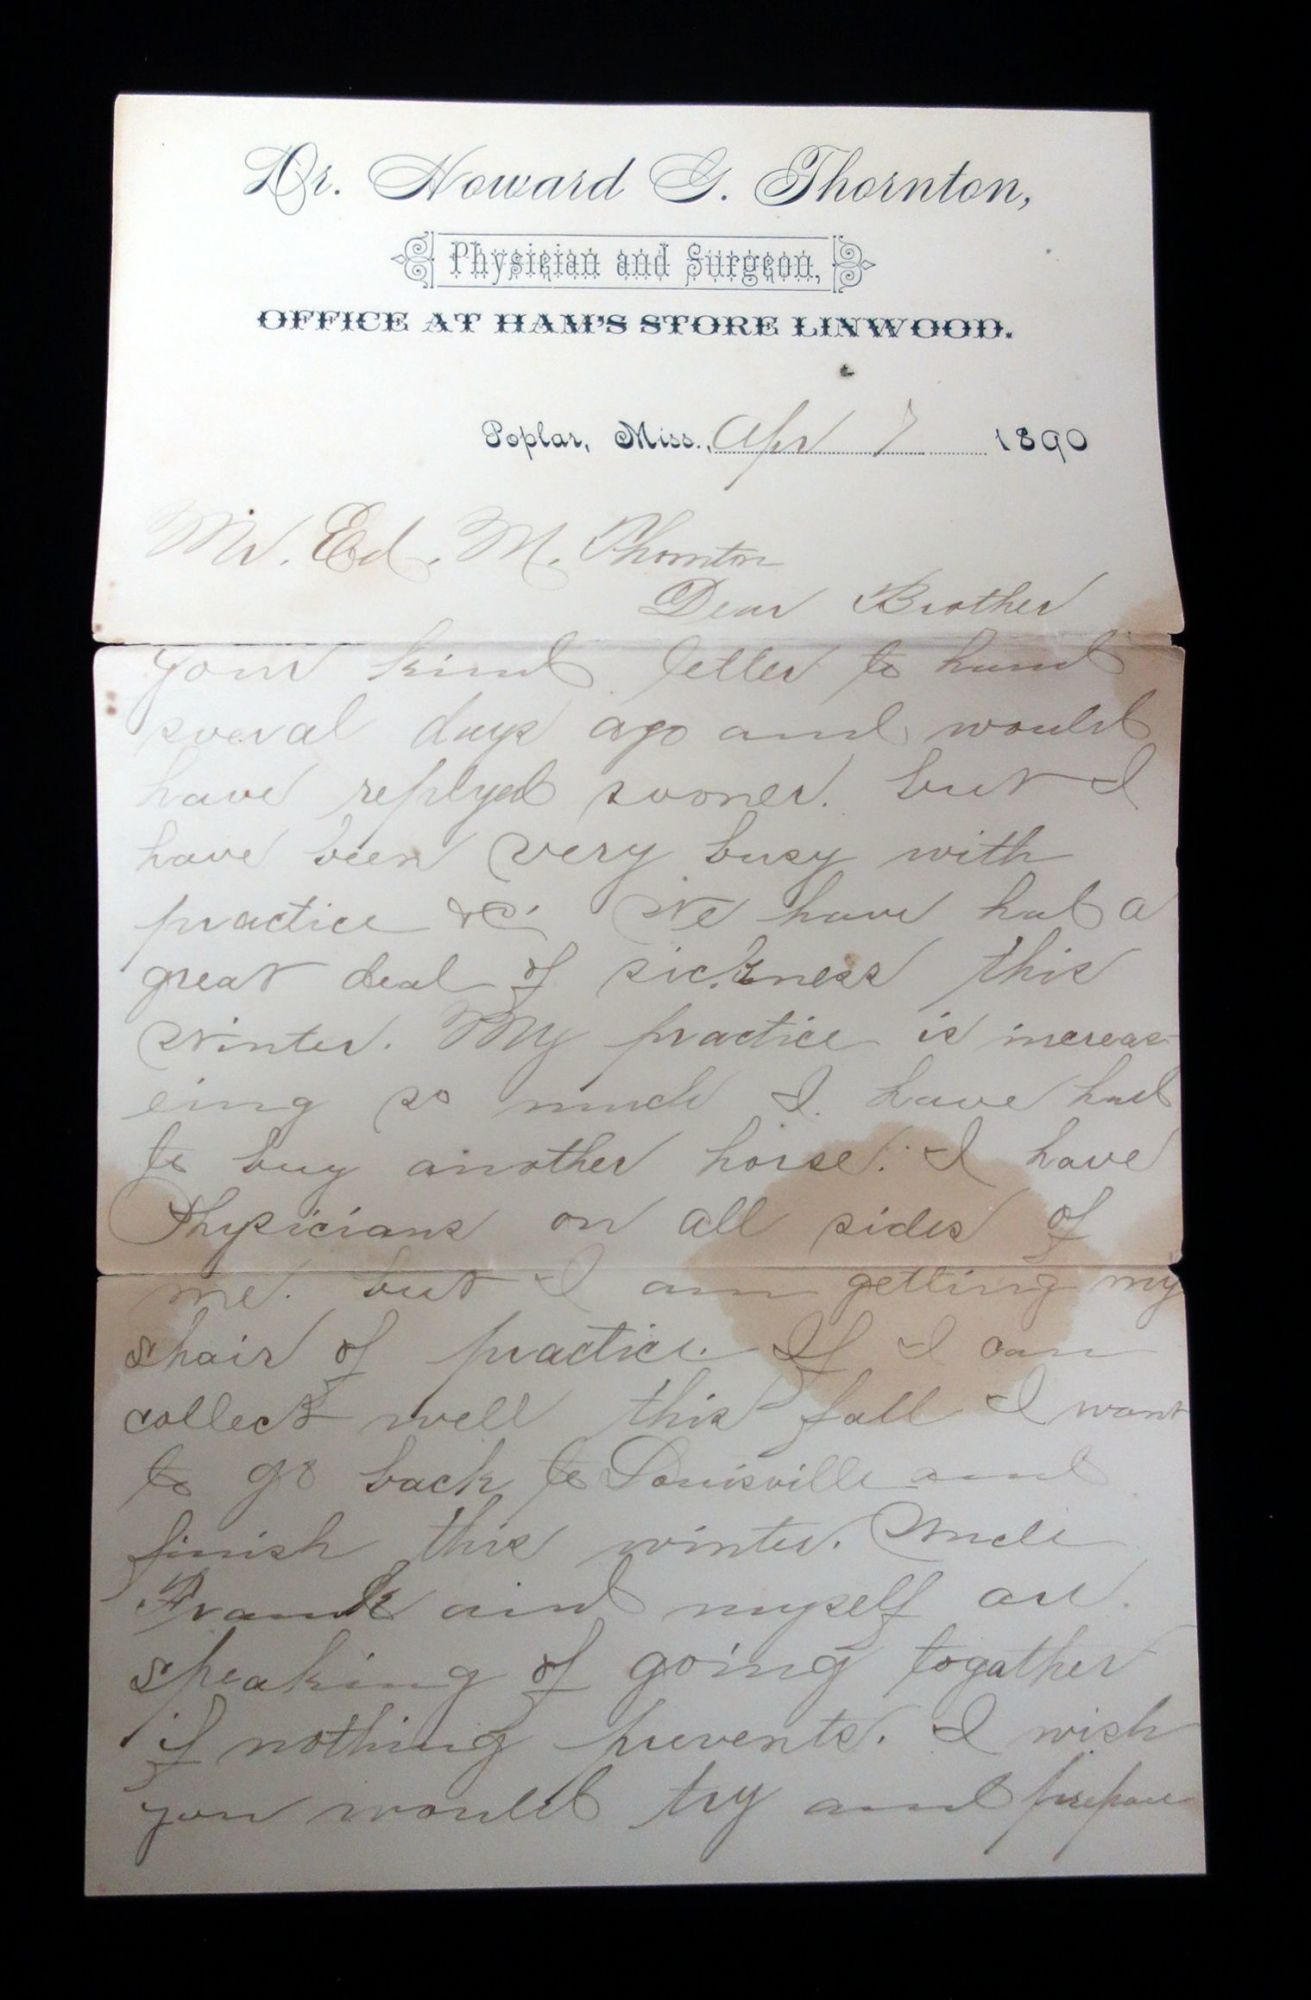 Dr. Howard G. Thornton,
Physician and Surgeon,
OFFICE AT HAM'S STORE LINWOOD.
Poplar, Miss., Apr 7 1890
Mr. Ed. M. Thornton
Dear Brother
your kind letter to hand
several days ago and would
have replyed sooner. but I
have been very busy with
practice &c. We have had a
great deal of sickness this
Winter. My practice is increas-
eing so much I have had
to buy another horse. I have
Physicians on all sides of
me. but I am getting my
shair of practice. If I can
collect well this fall I want
to go back to Louisville and
finish this winter. Uncle
Frank and myself are
speaking of going togather
if nothing prevents. I wish
you would try and prepare